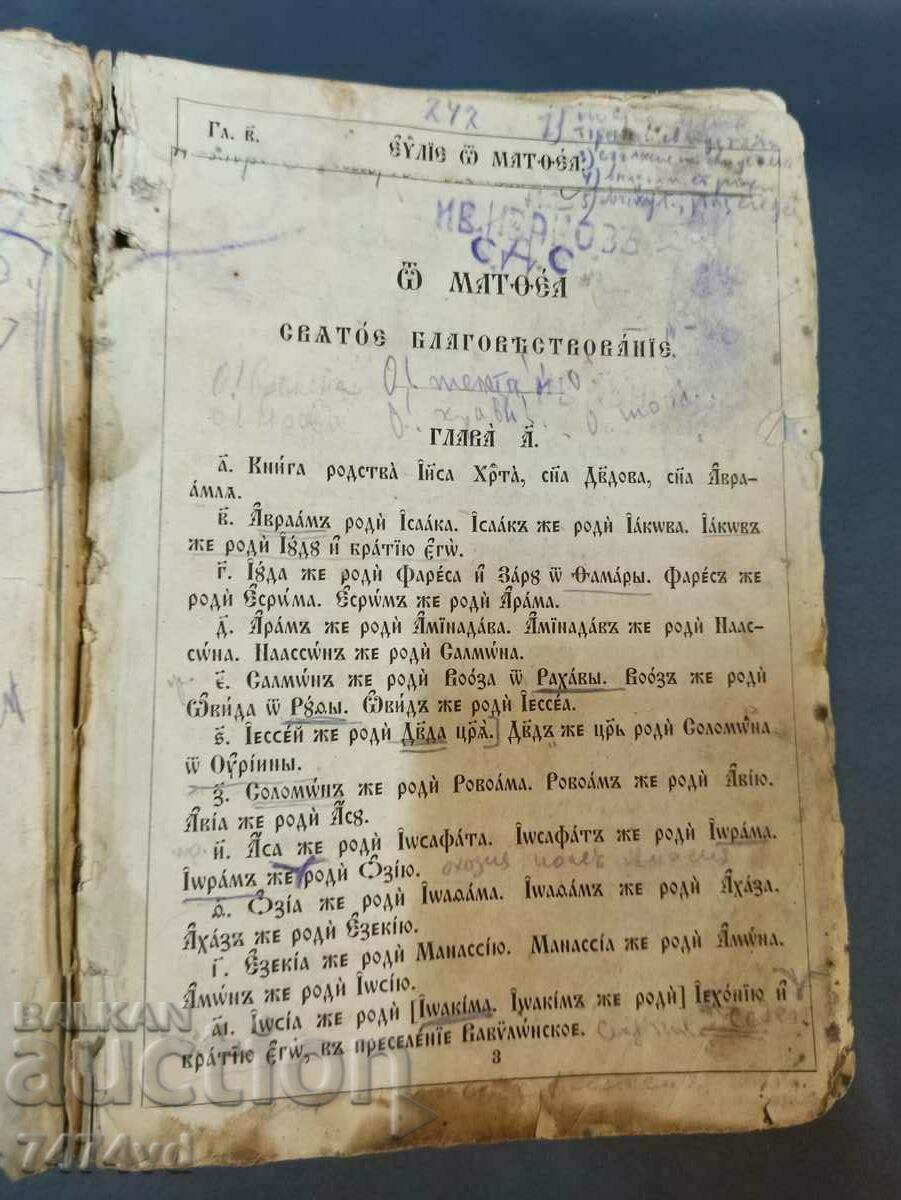 242
Гл. в҃.
ЄѴ҃ЛІЕ Ѿ МАТѲЕ́А.
ИВ. ИВАНОВЪ
САС
Ѿ МАТѲЕ́А
СВѦТО́Е БЛАГОВѢСТВОВА́НІЕ.
О! О!
О! О!
ГЛАВА̀ А҃.
а҃. Кни́га родства̀ І҆и҃са Хр҇та̀, сн҃а Дв҃дова, сн҃а А҆враа́млѧ.
в҃. А҆враа́мъ родѝ І҆саа́ка. І҆саа́къ же родѝ І҆а́кѡва. І҆а́кѡвъ
же родѝ І҆ꙋ́дꙋ и҆ бра́тїю є҆гѡ̀.
г҃. І҆ꙋ́да же родѝ Фаре́са и҆ За́рꙋ ѿ Ѳама́ры. Фаре́съ же
родѝ Є҆срѡ́ма. Є҆срѡ́мъ же родѝ А҆ра́ма.
д҃. А҆ра́мъ же родѝ А҆мїнада́ва. А҆мїнада́въ же родѝ Наас-
сѡ́на. Наассѡ́нъ же родѝ Салмѡ́на.
є҃. Салмѡ́нъ же родѝ Воо́за ѿ Раха́вы. Воо́зъ же родѝ
Ѡ҆ви́да ѿ Рꙋ́ѳы. Ѡ҆ви́дъ же родѝ І҆ессе́а.
ѕ҃. І҆ессе́й же родѝ Дв҃да цр҃ѧ̀.] Дв҃дъ же цр҃ь родѝ Соломѡ́на
ѿ Оу҆рі́ины.
з҃. Соломѡ́нъ же родѝ Ровоа́ма. Ровоа́мъ же родѝ А҆ві́ю.
А҆ві́а же родѝ А҆́сꙋ.
и҃. А҆́са же родѝ І҆ѡсафа́та. І҆ѡсафа́тъ же родѝ І҆ѡра́ма.
І҆ѡра́мъ же родѝ Ѻ҆зі́ю.
ѳ҃. Ѻ҆зі́а же родѝ І҆ѡаѳа́ма. І҆ѡаѳа́мъ же родѝ А҆ха́за.
А҆ха́зъ же родѝ Є҆зекі́ю.
і҃. Є҆зекі́а же родѝ Манассі́ю. Манассі́а же родѝ А҆мѡ́на.
А҆мѡ́нъ же родѝ І҆ѡсі́ю.
а҃і. І҆ѡсі́а же родѝ [І҆ѡакі́ма. І҆ѡакі́мъ же родѝ] І҆ехо́нїю и҆
бра́тїю є҆гѡ̀, въ преселе́нїе Вавѷлѡ́нское.
3
BALKAN
auction
7474vd